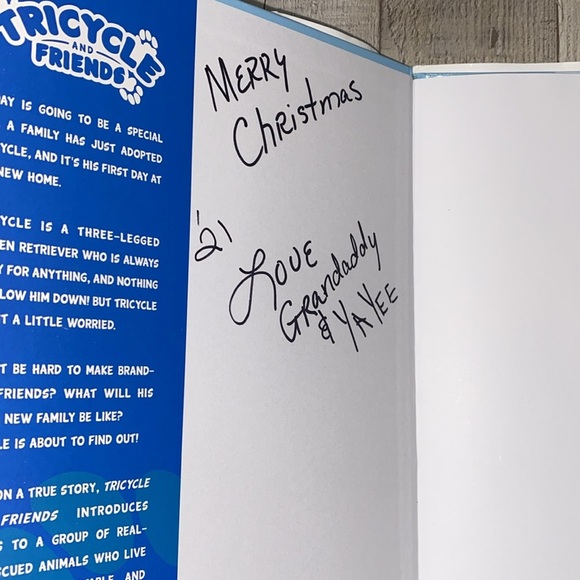 TRICYCLE
AND
FRIENDS
AY IS GOING TO BE A SPECIAL
A FAMILY HAS JUST ADOPTED
YCLE, AND IT'S HIS FIRST DAY AT
NEW HOME.
YCLE IS A THREE-LEGGED
EN RETRIEVER WHO IS ALWAYS
Y FOR ANYTHING, AND NOTHING
LOW HIM DOWN! BUT TRICYCLE
T A LITTLE WORRIED.
T BE HARD TO MAKE BRAND-
FRIENDS? WHAT WILL HIS
NEW FAMILY BE LIKE?
LE IS ABOUT TO FIND OUT!
ON A TRUE STORY, TRICYCLE
FRIENDS INTRODUCES
S TO A GROUP OF REAL-
SCUED ANIMALS WHO LIVE
AND
MERRY
Christmas
'21
LOVE
Grandaddy
& YAYEE